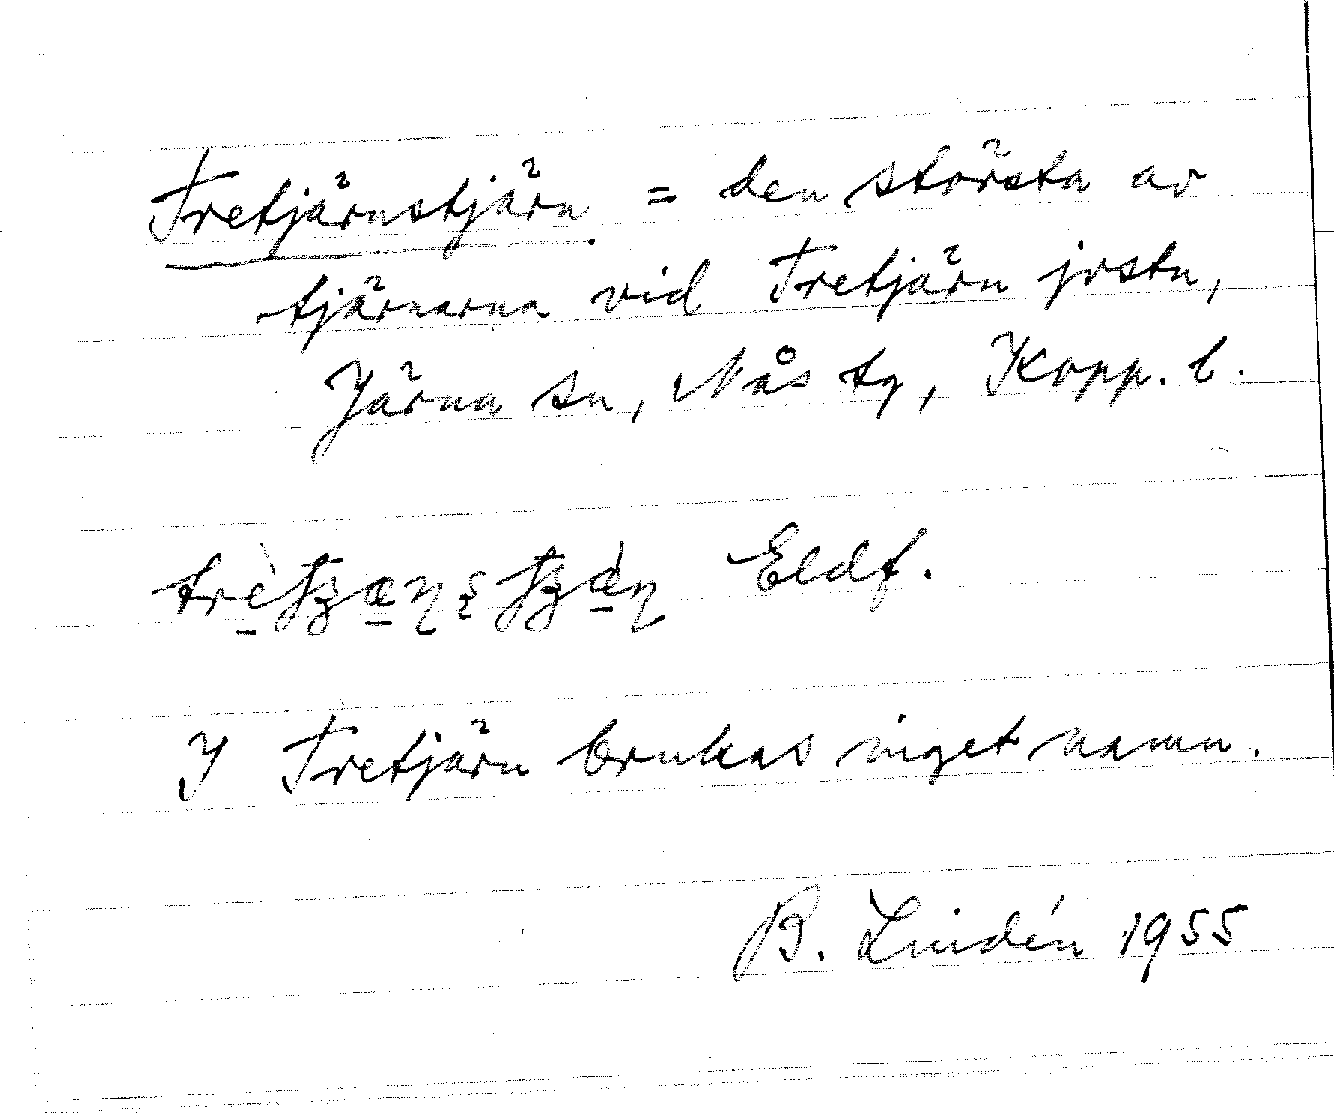 Tretjärnstjärn = den största av
tjärnarna vid Tretjärn jvstn,
Järna sn, Nås tg, Kopp. l.
Eldf.
I Tretjärn brukas inget namn.
B. Lindén 1955